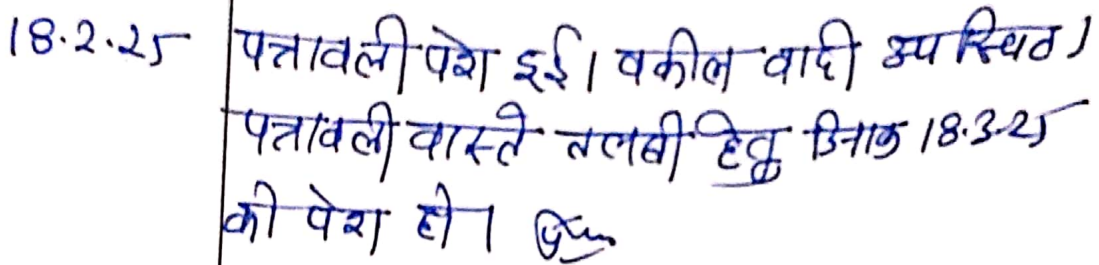 18.2.25 पत्रावली पेश हुई। वकील वादी उपस्थित।
पत्रावली वास्ते तलबी हेतु दिनांक 18.3.25
को पेश हो।